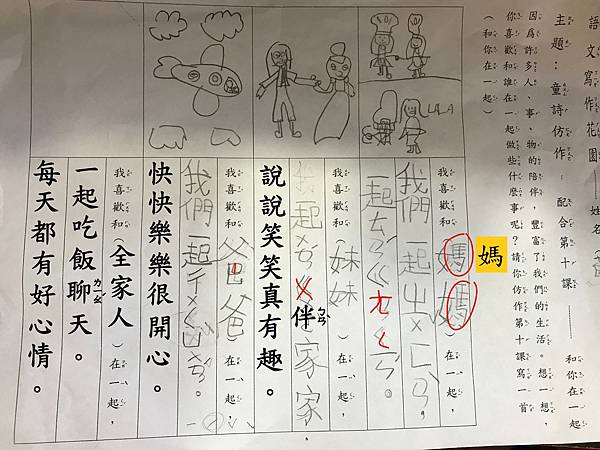 語文寫作花園 姓名
主題:童詩仿作 配合第十課 和你在一起
因為許多人、事、物的陪伴,豐富了我們的生活。想一想,
你喜歡和誰在一起做些什麼事呢?請你仿作第十課寫一首
(和你在一起)
媽
媽媽)在一起,
我們一起ㄓㄨˇㄈㄢˋ,
一起
我喜歡和(妹妹)在一起,
我一起伴ㄅㄢˋ家家
說說笑笑真有趣。
我喜歡和(爸爸)在一起,
我們一起
快快樂樂很開心。
我喜歡和(全家人)在一起,
一起吃飯聊ㄌㄧㄠˊ天。
每天都有好心情。
LALA